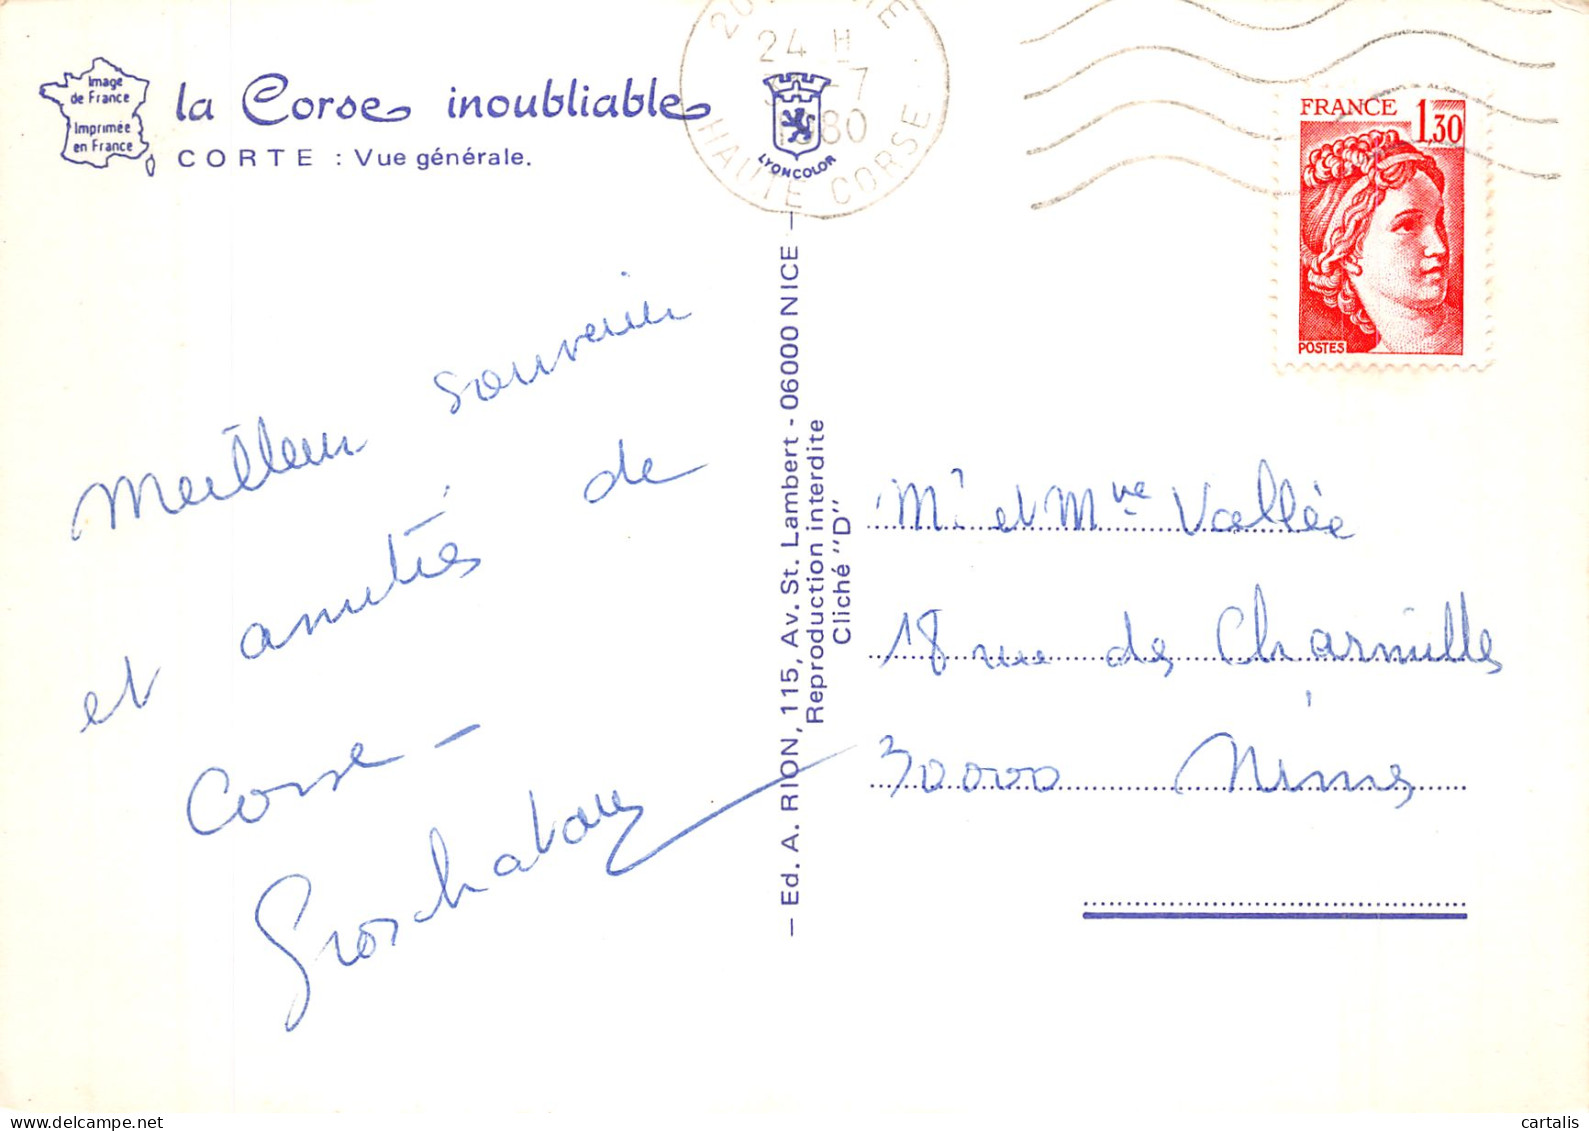 Image
de France
Imprimée
en France
la Corse inoubliable
CORTE : Vue générale.
24 H
-7
1980
HAUTE CORSE
LYONCOLOR
FRANCE 1,30
POSTES
Meilleur souvenir
et amitiés de
Corse -
— Ed. A. RION, 115, Av. St. Lambert - 06000 NICE —
Reproduction interdite
Cliché "D"
Mr et Mme Vallée
18 rue des Charmilles
30000 Nîmes
delcampe.net
cartalis